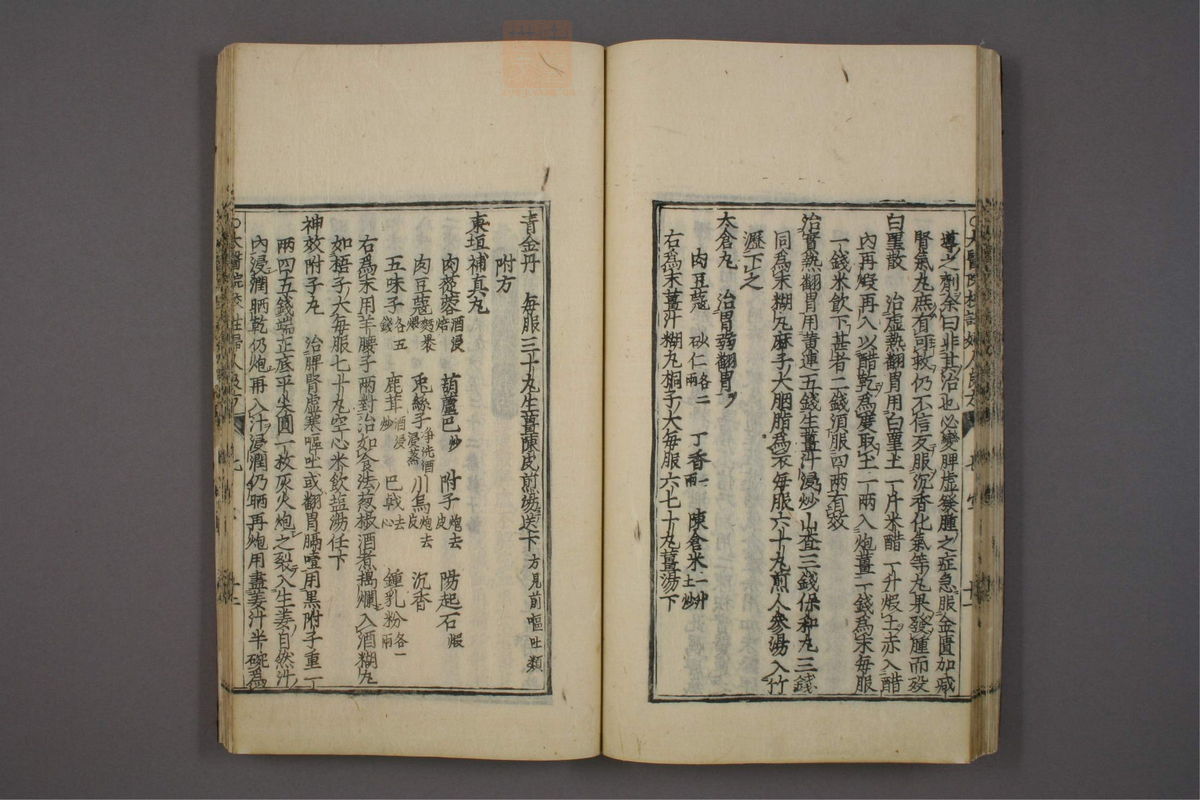 導之劑余曰非其治也必變脾虛發腫之症急服金匱加减
腎氣丸庶有可救仍不信反服沉香化氣等丸果發腫而歿
白堊散　治虛熱翻胃用白堊土一斤米醋一升煆土赤入醋
內再煆再入以醋乾爲度取土一兩入炮薑一錢爲末每服
一錢米飲下甚者二錢湏服四兩有效
治實熱翻胃用黄連五錢生薑汁浸炒山查三錢保和丸三錢
同爲末糊丸麻子大胭脂爲衣每服六十丸煎人參湯入竹
瀝下之
太倉丸　治胃弱翻胃
肉豆蔻　砂仁各二兩　丁香一兩　陳倉米一升土炒
右爲末薑汁糊丸桐子大每服六七十丸薑湯下
附方
青金丹　每服三十丸生薑陳皮煎湯送下方見前嘔吐類
東垣補真丸
肉蓯蓉酒浸焙　葫蘆巴炒　附子炮去皮　陽起石煆
肉豆蔻麪裹煨　兎絲子净洗酒浸蒸　川烏炮去皮　沉香
五味子各五錢　鹿茸酒浸炒　巴戟去心　鍾乳粉各一兩
右爲末用羊腰子兩對治如食法葱椒酒煮搗爛入酒糊丸
如梧子大每服七十丸空心米飲塩湯任下
神效附子丸　治脾腎虛寒嘔吐或翻胃膈噎用黑附子重一
兩四五錢端正底平尖圓一枚灰火炮之裂入生姜自然汁
內浸潤晒乾仍炮再入汁浸潤仍晒再炮用盡姜汁半碗爲